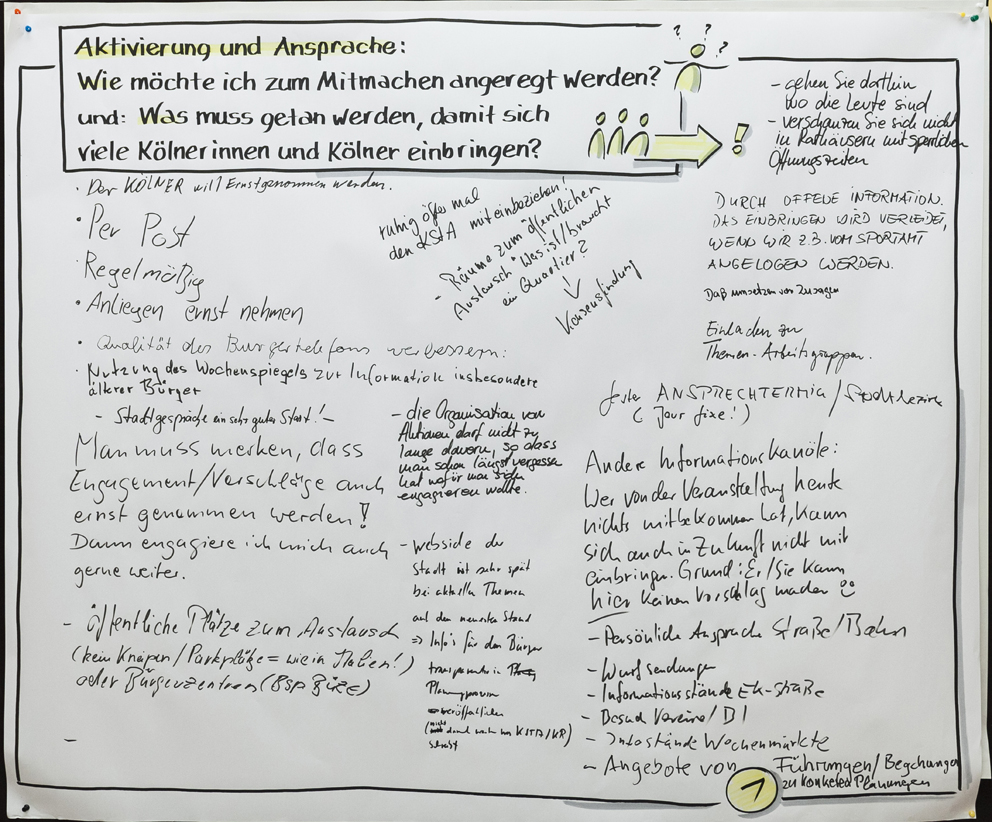 Aktivierung und Ansprache:
Wie möchte ich zum Mitmachen angeregt werden?
und: Was muss getan werden, damit sich
viele Kölnerinnen und Kölner einbringen?
? ? ?
!
- gehen Sie dorthin
wo die Leute sind
- verschanzen Sie sich nicht
in Rathäusern mit spärlichen
Öffnungszeiten
· Der KÖLNER will Ernstgenommen werden.
· Per Post
· Regelmäßig
· Anliegen ernst nehmen
· Qualität des Bürgertelefons verbessern:
· Nutzung des Wochenspiegels zur Information insbesondere
älterer Bürger
- Stadtgespräche ein sehr guter Start! -
Man muss merken, dass
Engagement/Vorschläge auch
ernst genommen werden!
Dann engagiere ich mich auch
gerne weiter.
- öffentliche Plätze zum Austausch
(kein Knäipen/Parkplätze = wie in Italien!)
oder Bürgerzentren (BSP BüZe)
-
ruhig öfter mal
den KStA miteinbeziehen!
- Räume zum öffentlichen
Austausch "Was ist/braucht
ein Quartier?
↓
Konsensfindung
- die Organisation von
Aktionen darf nicht zu
lange dauern, so dass
man schon längst vergessen
hat wofür man sich
engagieren wollte.
- Webside der
Stadt ist sehr spät
bei aktuellen Themen
auf den neuesten Stand
⇒ Info's für den Bürger
transparenter in
Planungsprozesse
veröffentlichen
(nicht damit warten KSTA/KR)
schreibt
DURCH OFFENE INFORMATION.
DAS EINBRINGEN WIRD VERLEIDET,
WENN WIR Z.B. VOM SPORTAMT
ANGELOGEN WERDEN.
Daß umsetzen von Zusagen
Einladen zu
Themen-Arbeitsgruppen.
fester ANSPRECHTERMIN / Stadtbezirk
( Jour fixe! )
Andere Informationskanäle:
Wer von der Veranstaltung heute
nichts mitbekommen hat, kann
sich auch in Zukunft nicht mit
einbringen. Grund: Er/Sie kann
hier keinen Vorschlag machen
- Persönliche Ansprache Straße/Bahn
- Wurfsendungen
- Informationsstände EK-Straße
- Besuch Vereine/
- Infostände Wochenmärkte
- Angebote von Führungen/Begehungen
zu konkreten Planungen
1